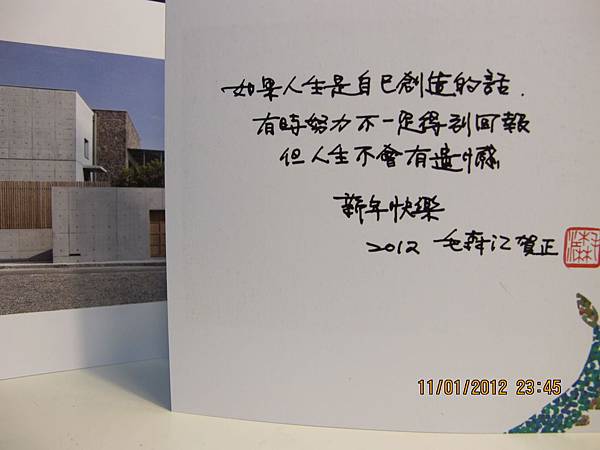 如果人生是自己創造的話.
有時努力不一定得到回報
但人生不會有遺憾
新年快樂
2012 毛森江賀正
11/01/2012 23:45